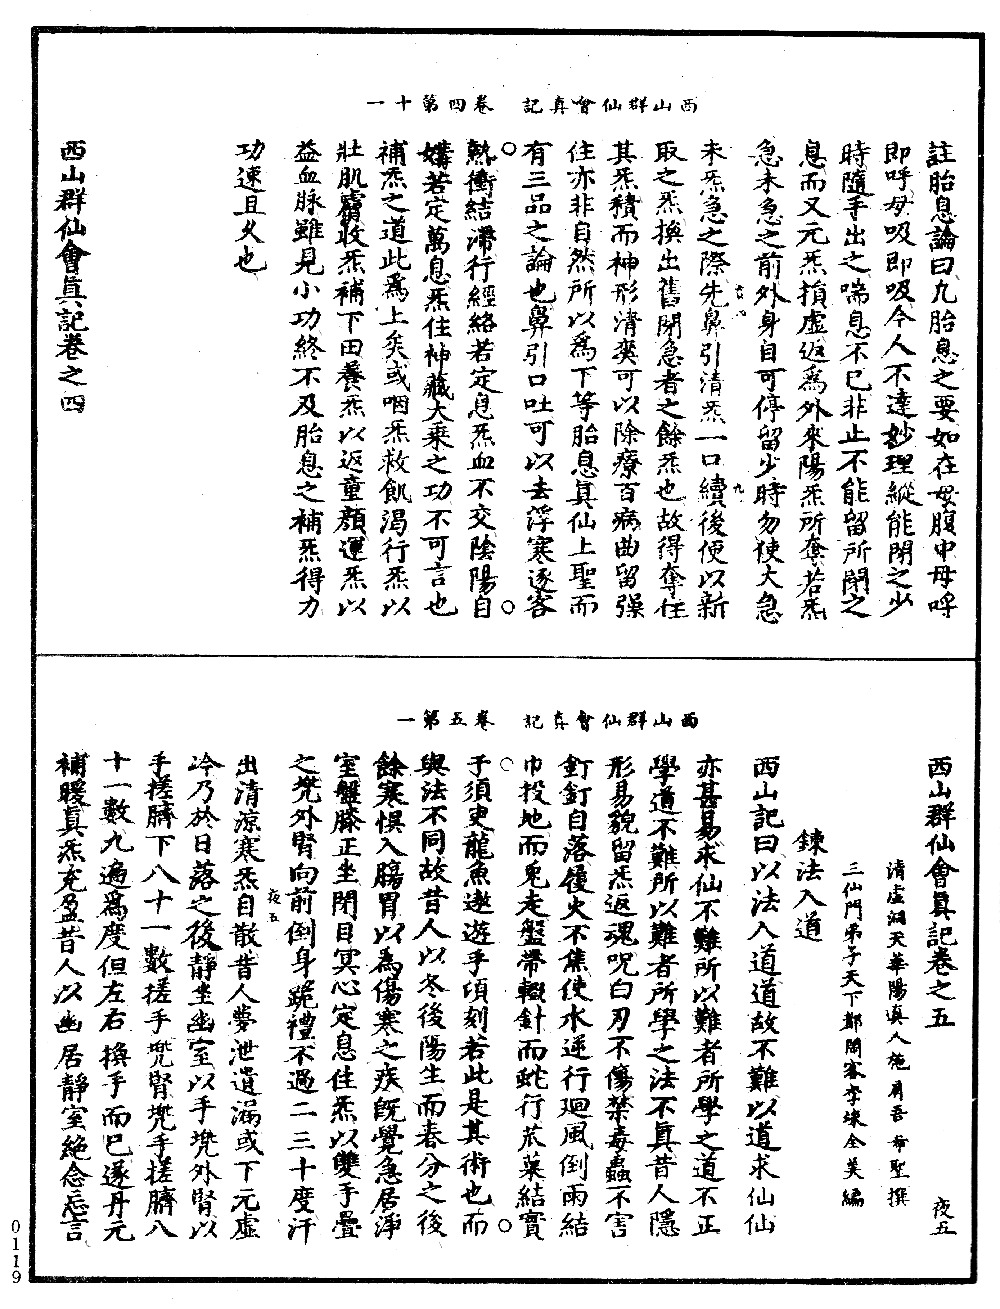 西山群仙會真記　卷四第十一
註胎息論曰九胎息之要如在母腹中母呼
即呼母吸即吸今人不達妙理縱能閉之少
時隨手出之喘息不已非止不能留所閉之
息而又元炁損虛返為外來陽炁所奪若炁
急未急之前外身自可停留少時勿使大急
未炁急之際先鼻引清炁一口續後便以新
取之炁換出舊閉急者之餘炁也故得奪住
其炁積而神形清爽可以除療百病曲留強
住亦非自然所以為下等胎息真仙上聖而
有三品之論也鼻引口吐可以去浮寒逐客
熱衝結滯行經絡若定息炁血不交陰陽自
媾若定萬息炁住神藏大乘之功不可言也
補炁之道此為上矣或咽炁救飢渴行炁以
壯肌膚收炁補下田養炁以返童顏運炁以
益血脉雖見小功終不及胎息之補炁得力
功速且久也
西山群仙會真記卷之四
西山群仙會真記　卷五第一
西山群仙會真記卷之五　夜五
清虛洞天華陽真人施肩吾希聖撰
三仙門弟子天下都閑客李竦全美編
鍊法入道
西山記曰以法入道道故不難以道求仙仙
亦甚易求仙不難所以難者所學之道不正
學道不難所以難者所學之法不真昔人隱
形易貌留炁返魂呪白刃不傷禁毒蟲不害
釘釘自落履火不焦使水逆行廻風倒雨結
巾投地而兎走盤帶輟針而虵行苽菓結實
于須臾龍魚遨遊乎頃刻若此是其術也而
與法不同故昔人以冬後陽生而春分之後
餘寒悞入腸胃以為傷寒之疾旣覺急居淨
室盤膝正坐閉目冥心定息住炁以雙手疊
之兠外腎向前倒身跪禮不過二三十度汗
夜五
出清涼寒炁自散昔人夢泄遺漏或下元虛
冷乃於日落之後靜坐幽室以手兠外腎以
手搓臍下八十一數搓手兠腎兠手搓臍八
十一數九遍為度但左右換手而已遂丹元
補暖真炁充盈昔人以幽居靜室絕念忘言
0119